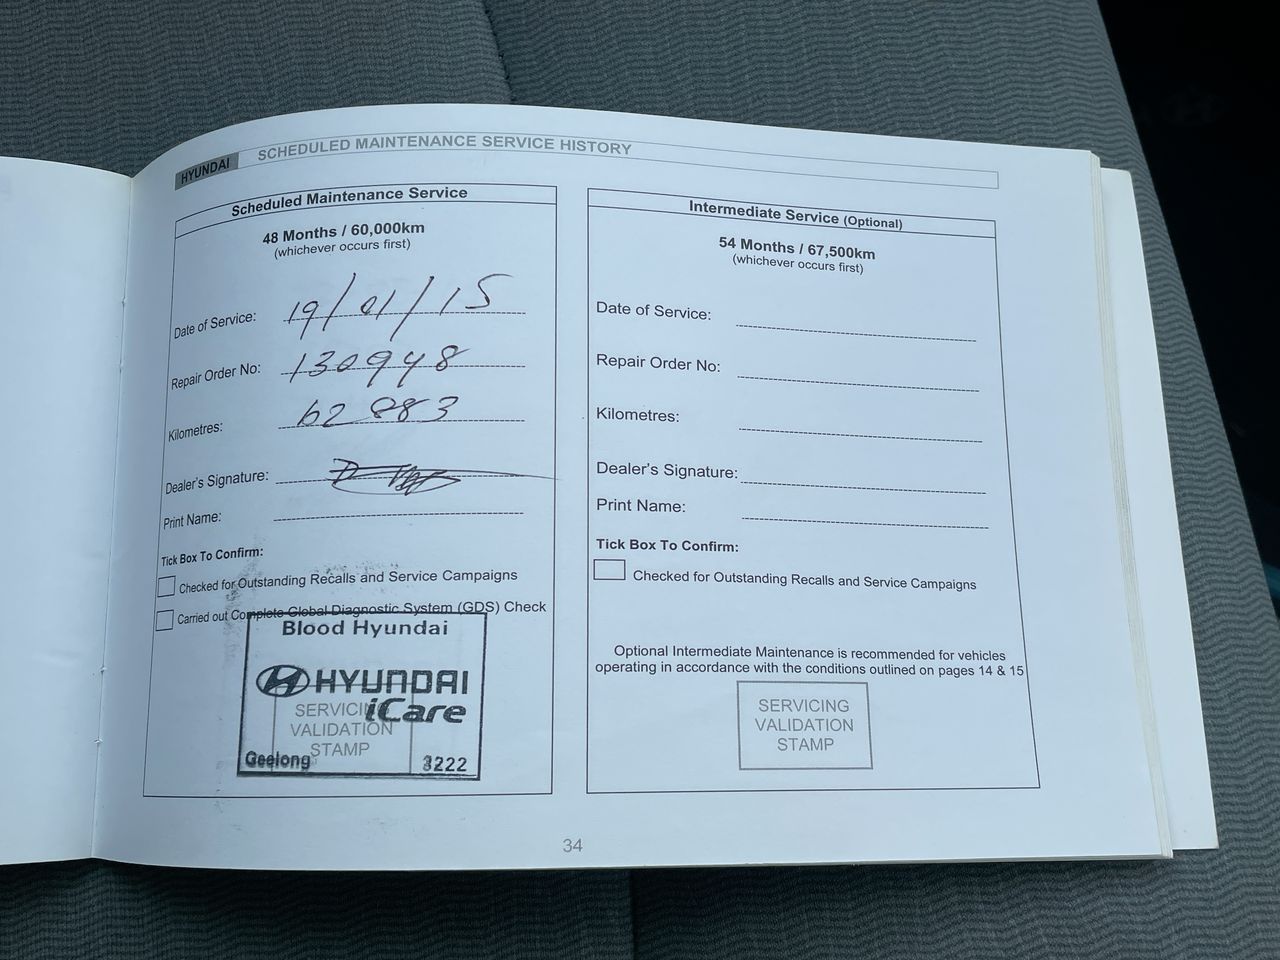 HYUNDAI SCHEDULED MAINTENANCE SERVICE HISTORY
Scheduled Maintenance Service
48 Months / 60,000km
(whichever occurs first)
Date of Service: 19/01/15
Repair Order No: 130948
Kilometres: 62 883
Dealer's Signature:
Print Name:
Tick Box To Confirm:
Checked for Outstanding Recalls and Service Campaigns
Carried out Complete Global Diagnostic System (GDS) Check
Blood Hyundai
HYUNDAI
iCare
SERVICING
VALIDATION
STAMP
Geelong 3222
Intermediate Service (Optional)
54 Months / 67,500km
(whichever occurs first)
Date of Service:
Repair Order No:
Kilometres:
Dealer's Signature:
Print Name:
Tick Box To Confirm:
Checked for Outstanding Recalls and Service Campaigns
Optional Intermediate Maintenance is recommended for vehicles
operating in accordance with the conditions outlined on pages 14 & 15
SERVICING
VALIDATION
STAMP
34